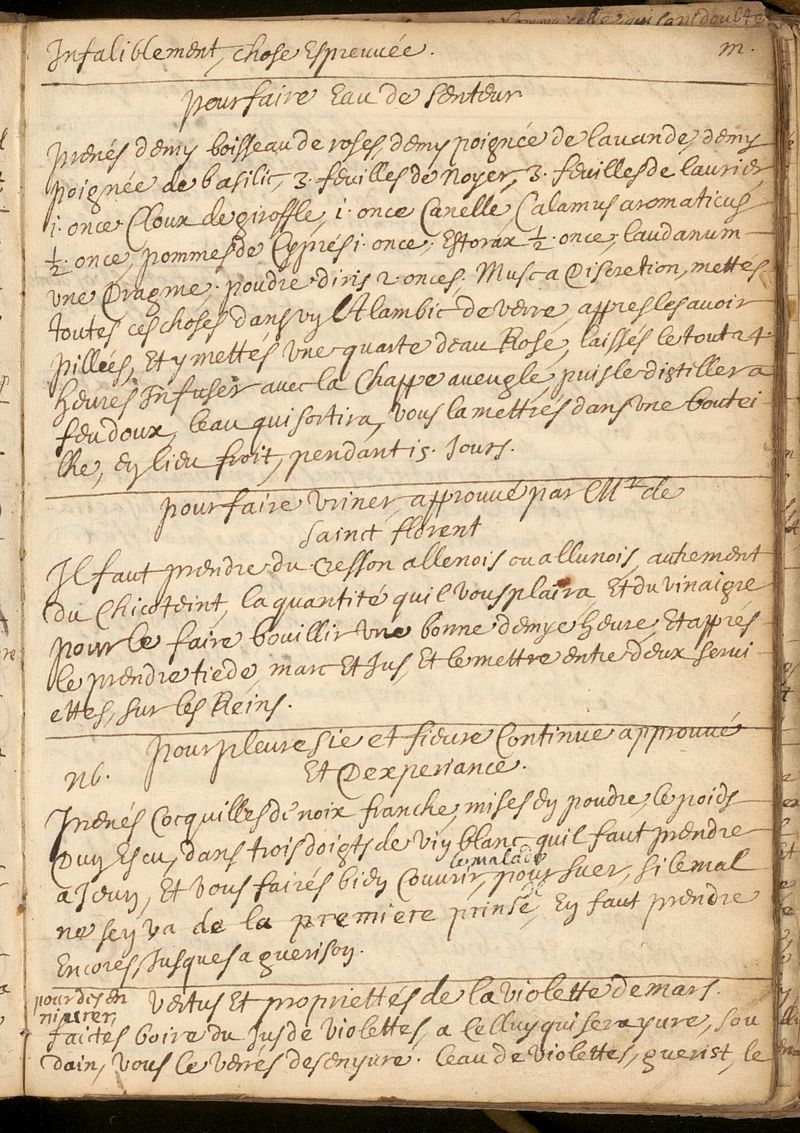 Infaliblement, chose Espreuuée. m.
pour faire Eau de senteur
prenés demy boisseau de roses, demy poignée de lauande, demy
poignée de basilic, 3. feuilles de Noyer, 3. feuilles de laurier,
1. once Cloux de giroffle, 1. once Canelle, Calamus aromaticus
½. once, pommes de Cyprés 1. once, Estorax ½. once, laudanum
vne Dragme. poudre d'iris 2 onces. Musc a Discretion, mettés
toutes ces choses dans vn Alambic de verre, appres les auoir
pillées, Et y mettés vne quarte deau Rose, laissés le tout 24.
heures Infuser auec la Chappe aueugle, puis le distiller a
feu doux, leau qui sortira, vous la mettrés dans vne boutei
lle, en lieu froit, pendant 15. Jours.
pour faire vriner, approuué par Mr. de
sainct florent
Il faut prendre du cresson allenois ou allunois, autrement
du Chicoteint, la quantité quil vous plaira Et du vinaigre
pour le faire bouillir vne bonne demye heure, Et apprés
le prendre tiede, marc Et Jus, Et le mettre entre deux serui
ettes, sur les Reins.
pour pleuresie et fieure Continue approuué
nb. Et Dexperiance.
Prenés Cocquilles de noix franche, mises en poudre, le poids
Dun Escu, dans trois doigts de vin blanc, quil faut prendre
a Jeun, Et vous fairés bien Couurir, le malade pour suer, si le mal
ne sen va de la premiere prinse, En faut prendre
Encores, Jusques a guerison.
pour desen
niurer,
vertus Et proprietés de la violette de mars.
faictes boire du Jus de violettes, a Celluy qui sera yure, sou
dain, vous le verrés desenyure. leau de violettes, guerist, le